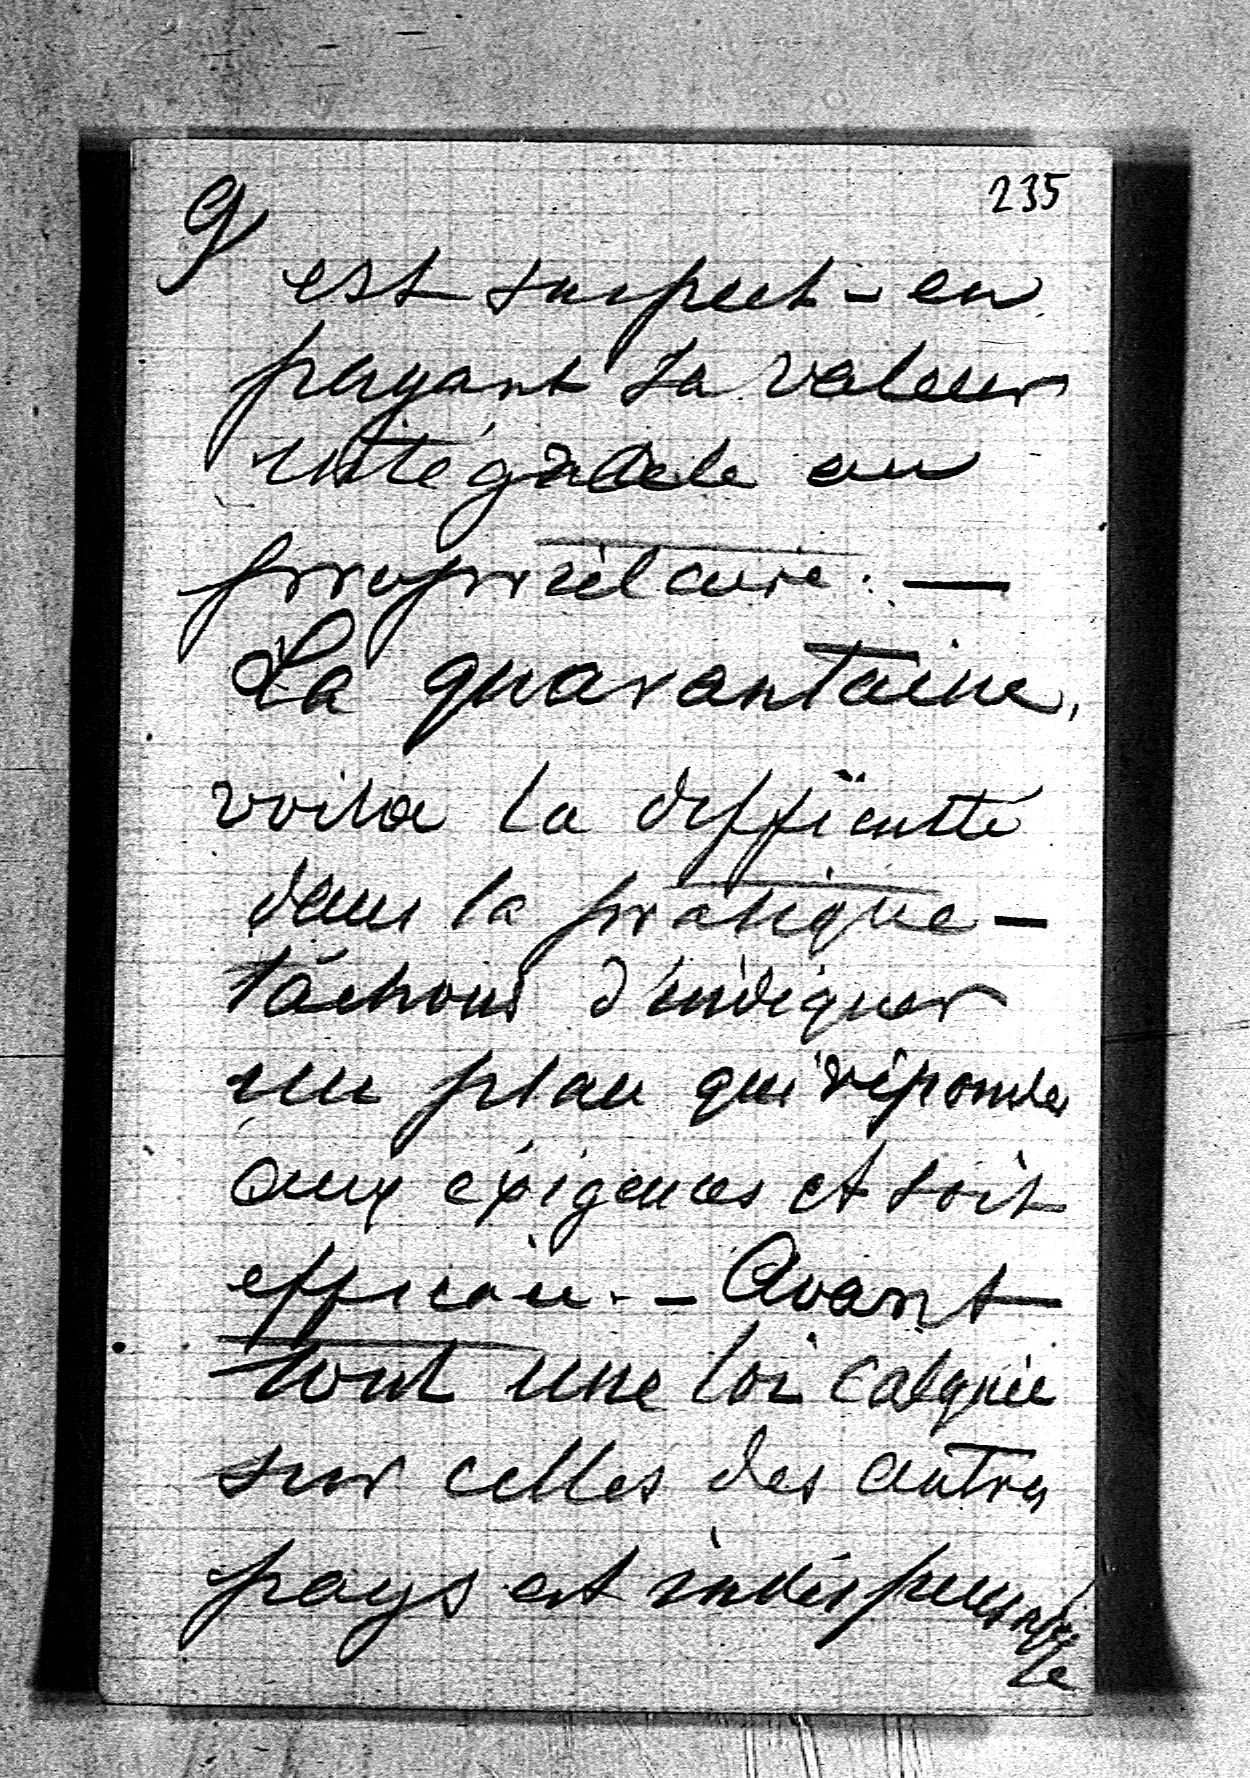 9
235
est suspect - en
payant sa valeur
intégrale au
propriétaire. —
La quarantaine,
voila la difficulté
dans la pratique —
tâchons d'indiquer
un plan qui réponde
aux éxigences et soit
efficace. - Avant
tout une loi calquée
sur celles des autres
pays est indispensable